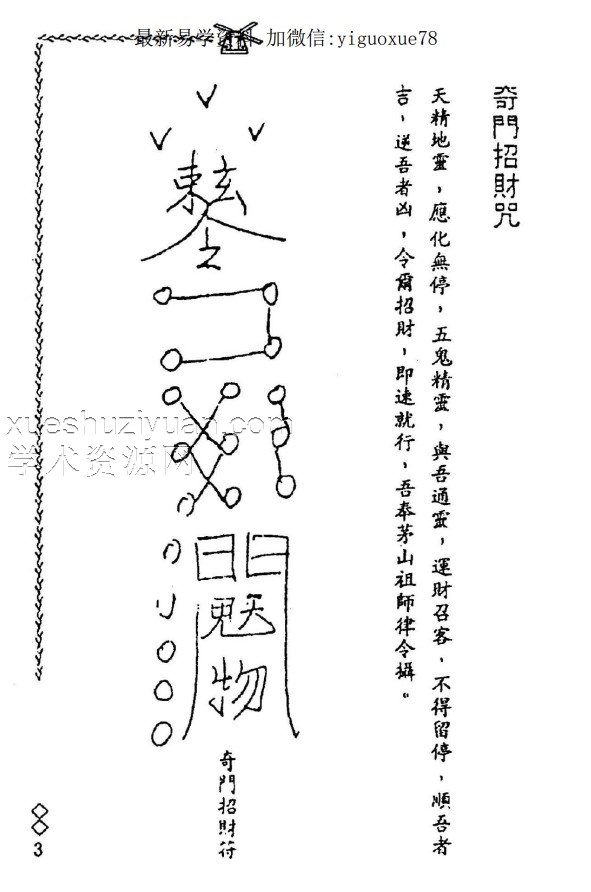 最新易学资料 加微信:yiguoxue78
奇門招財咒
天精地靈，應化無停，五鬼精靈，與吾通靈，運財召客，不得留停，順吾者
吉，逆吾者凶，令爾招財，即速就行，吾奉茅山祖師律令攝。
xueshuziyuan.com
学术资源网
物
奇門招財符
3